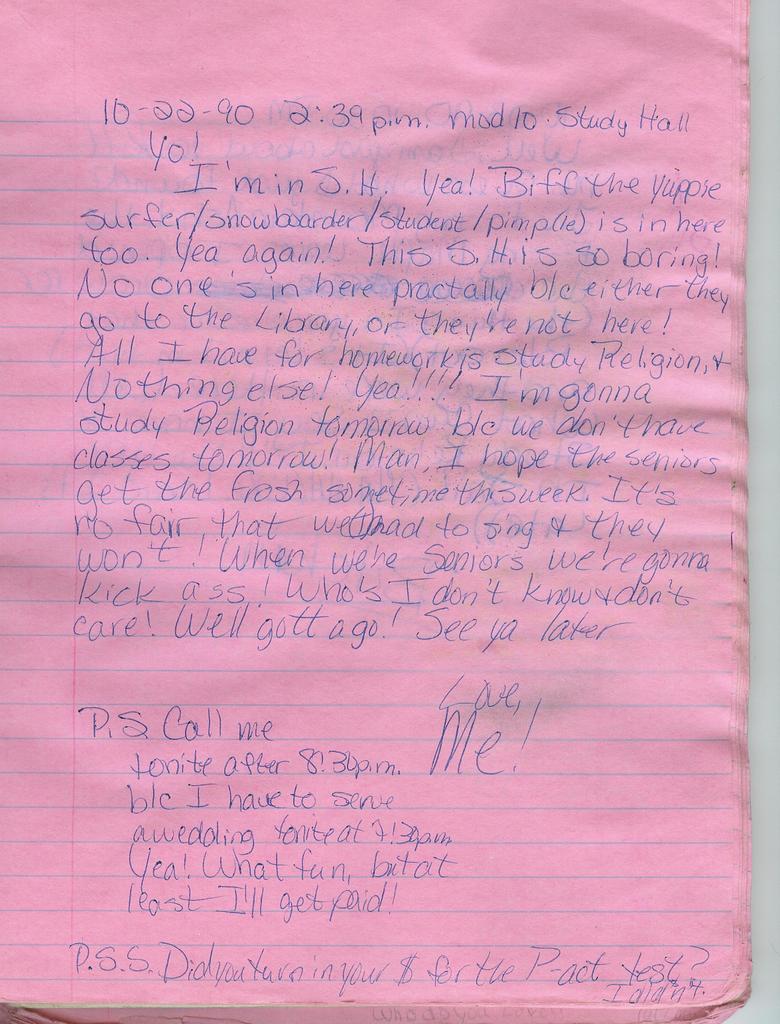 10-22-90 2:39 p.m. mod 10. Study Hall
Yo!
I'm in S.H. Yea! Biff the yuppie
surfer/snowboarder/student/pimp(le) is in here
too. Yea again! This S.H. is so boring!
No one's in here practally b/c either they
go to the Library, or they're not here!
All I have for homework is study Religion, &
Nothing else! Yea!!!! I'm gonna
study Religion tomorrow b/c we don't have
classes tomorrow! Man, I hope the seniors
get the frosh sometime this week. It's
no fair, that we had to sing & they
won't! When we're Seniors we're gonna
kick ass! Who's I don't know & don't
care! Well gotta go! See ya later
Love,
Me!
P.S. Call me
tonite after 8:30p.m.
b/c I have to serve
a wedding tonite at 7:30p.m.
Yea! What fun, but at
least I'll get paid!
P.S.S. Did you turn in your $ for the P-act test?
I didn't.